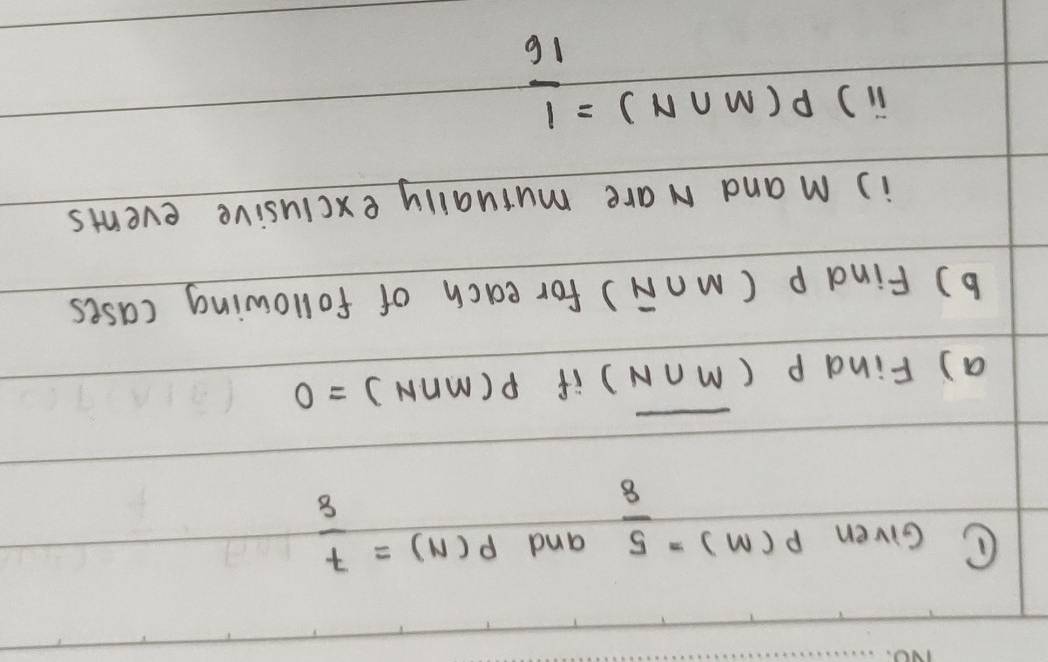 NO.
① Given P(M) = 5/8 and P(N) = 7/8
a) Find P ( M̅ ̅∩̅ ̅N̅ ) if P(M∩N) = 0
b) Find P ( M ∩ N̄ ) for each of following cases
i) M and N are mutually exclusive events
ii) P(M∩N) = 1/16